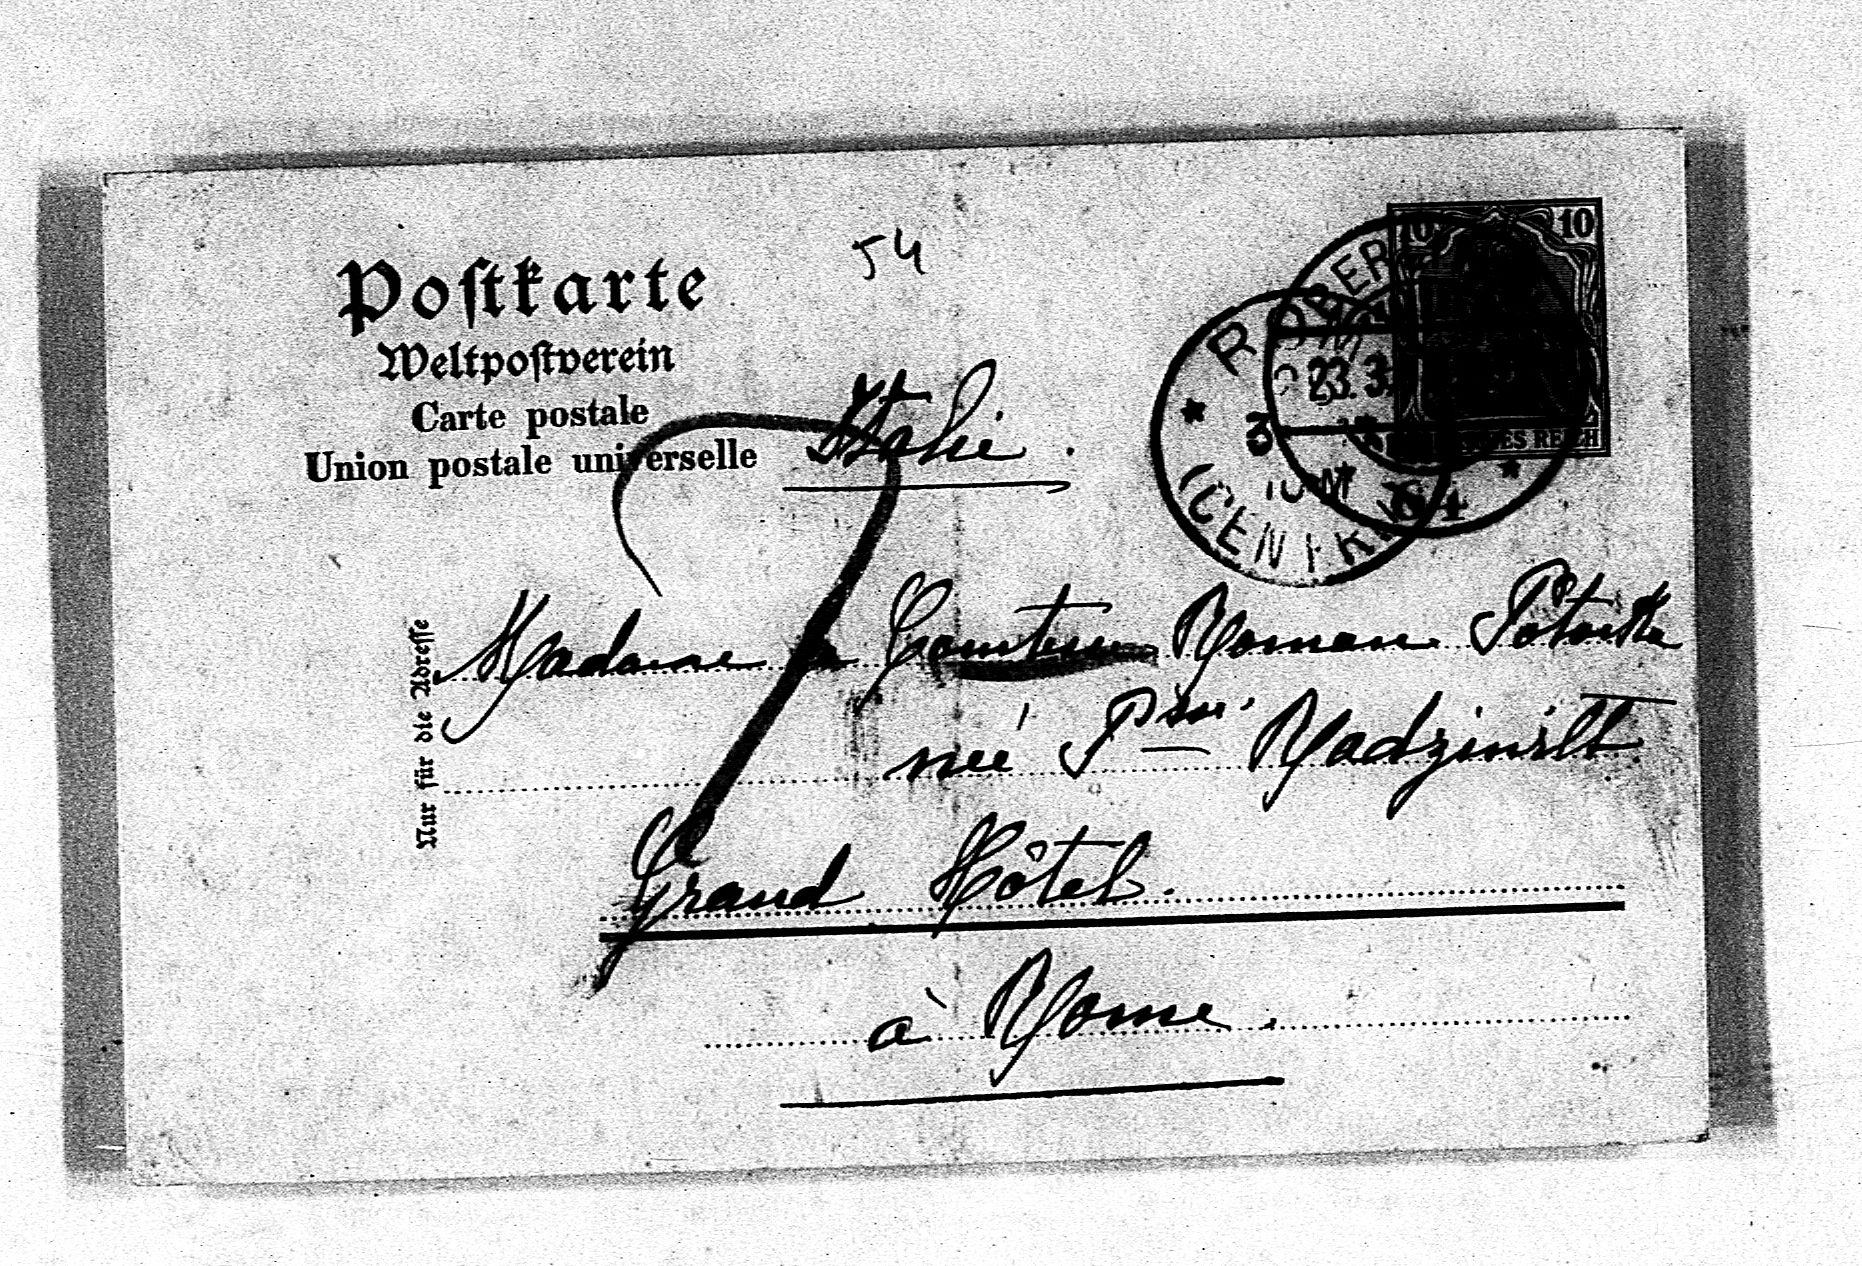 Postkarte
Weltpostverein
Carte postale
Union postale universelle
54
Italie.
10 10
23.3
Nur für die Adresse
Madame la Comtesse Roman Potocka
née Psse Radziwill
Grand Hôtel.
à Rome.